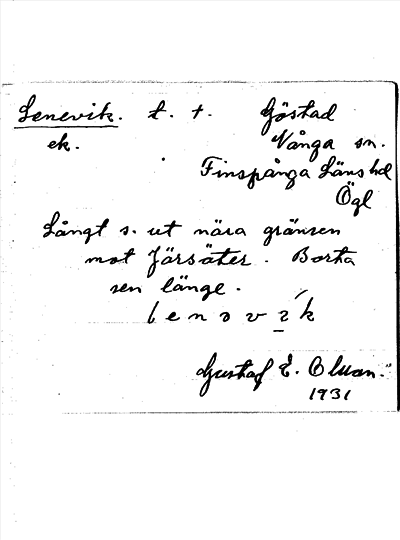 Lenevik. t. +. Göstad
ek. Vånga sn.
Finspånga Läns hd
Ögl
Långt s. ut nära gränsen
mot Järsäter. Borta
sen länge.
Gustaf E. Olsson.
1931